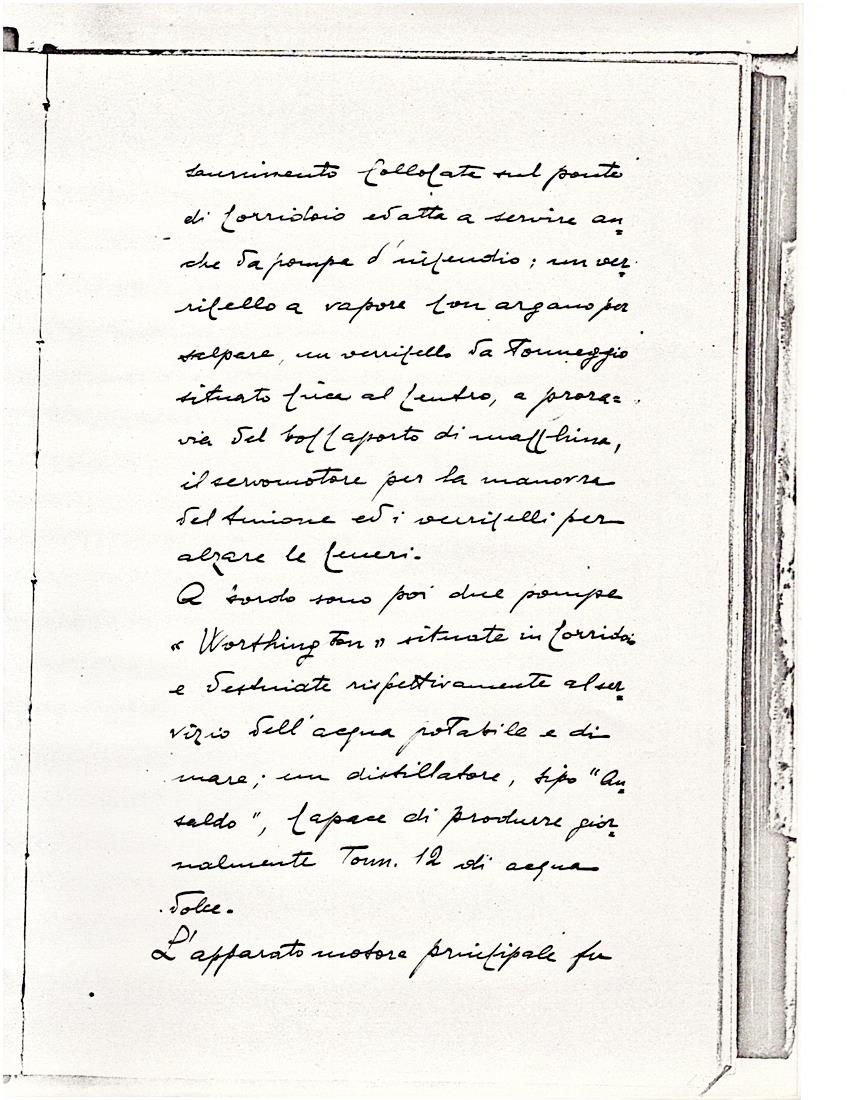 saurimento collocate sul ponte
di corridoio ed atta a servire an=
che da pompa d'incendio; un ver=
ricello a vapore con argano per
salpare, un verricello da tonneggio
situato circa al centro, a prora=
via del boccaporto di macchina,
il servomotore per la manovra
del timone ed i verricelli per
alzare le ceneri.
A bordo sono poi due pompe
« Worthington » situate in corridoio
e destinate rispettivamente al ser=
vizio dell'acqua potabile e di
mare; un distillatore, tipo "An=
saldo", capace di produrre gior=
nalmente Tonn. 12 di acqua
dolce.
L'apparato motore principale fu